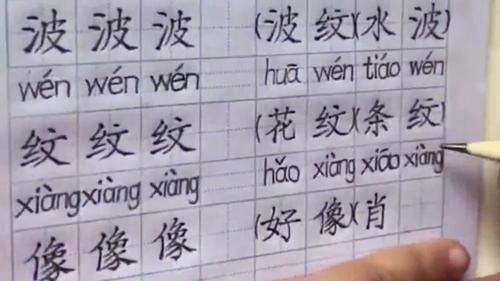 波 波 波 (波 纹)(水 波)
wén wén wén huā wén tiáo wén
纹 纹 纹 (花 纹)(条 纹)
xiàng xiàng xiàng hǎo xiàng xiāo xiàng
像 像 像 (好 像)(肖